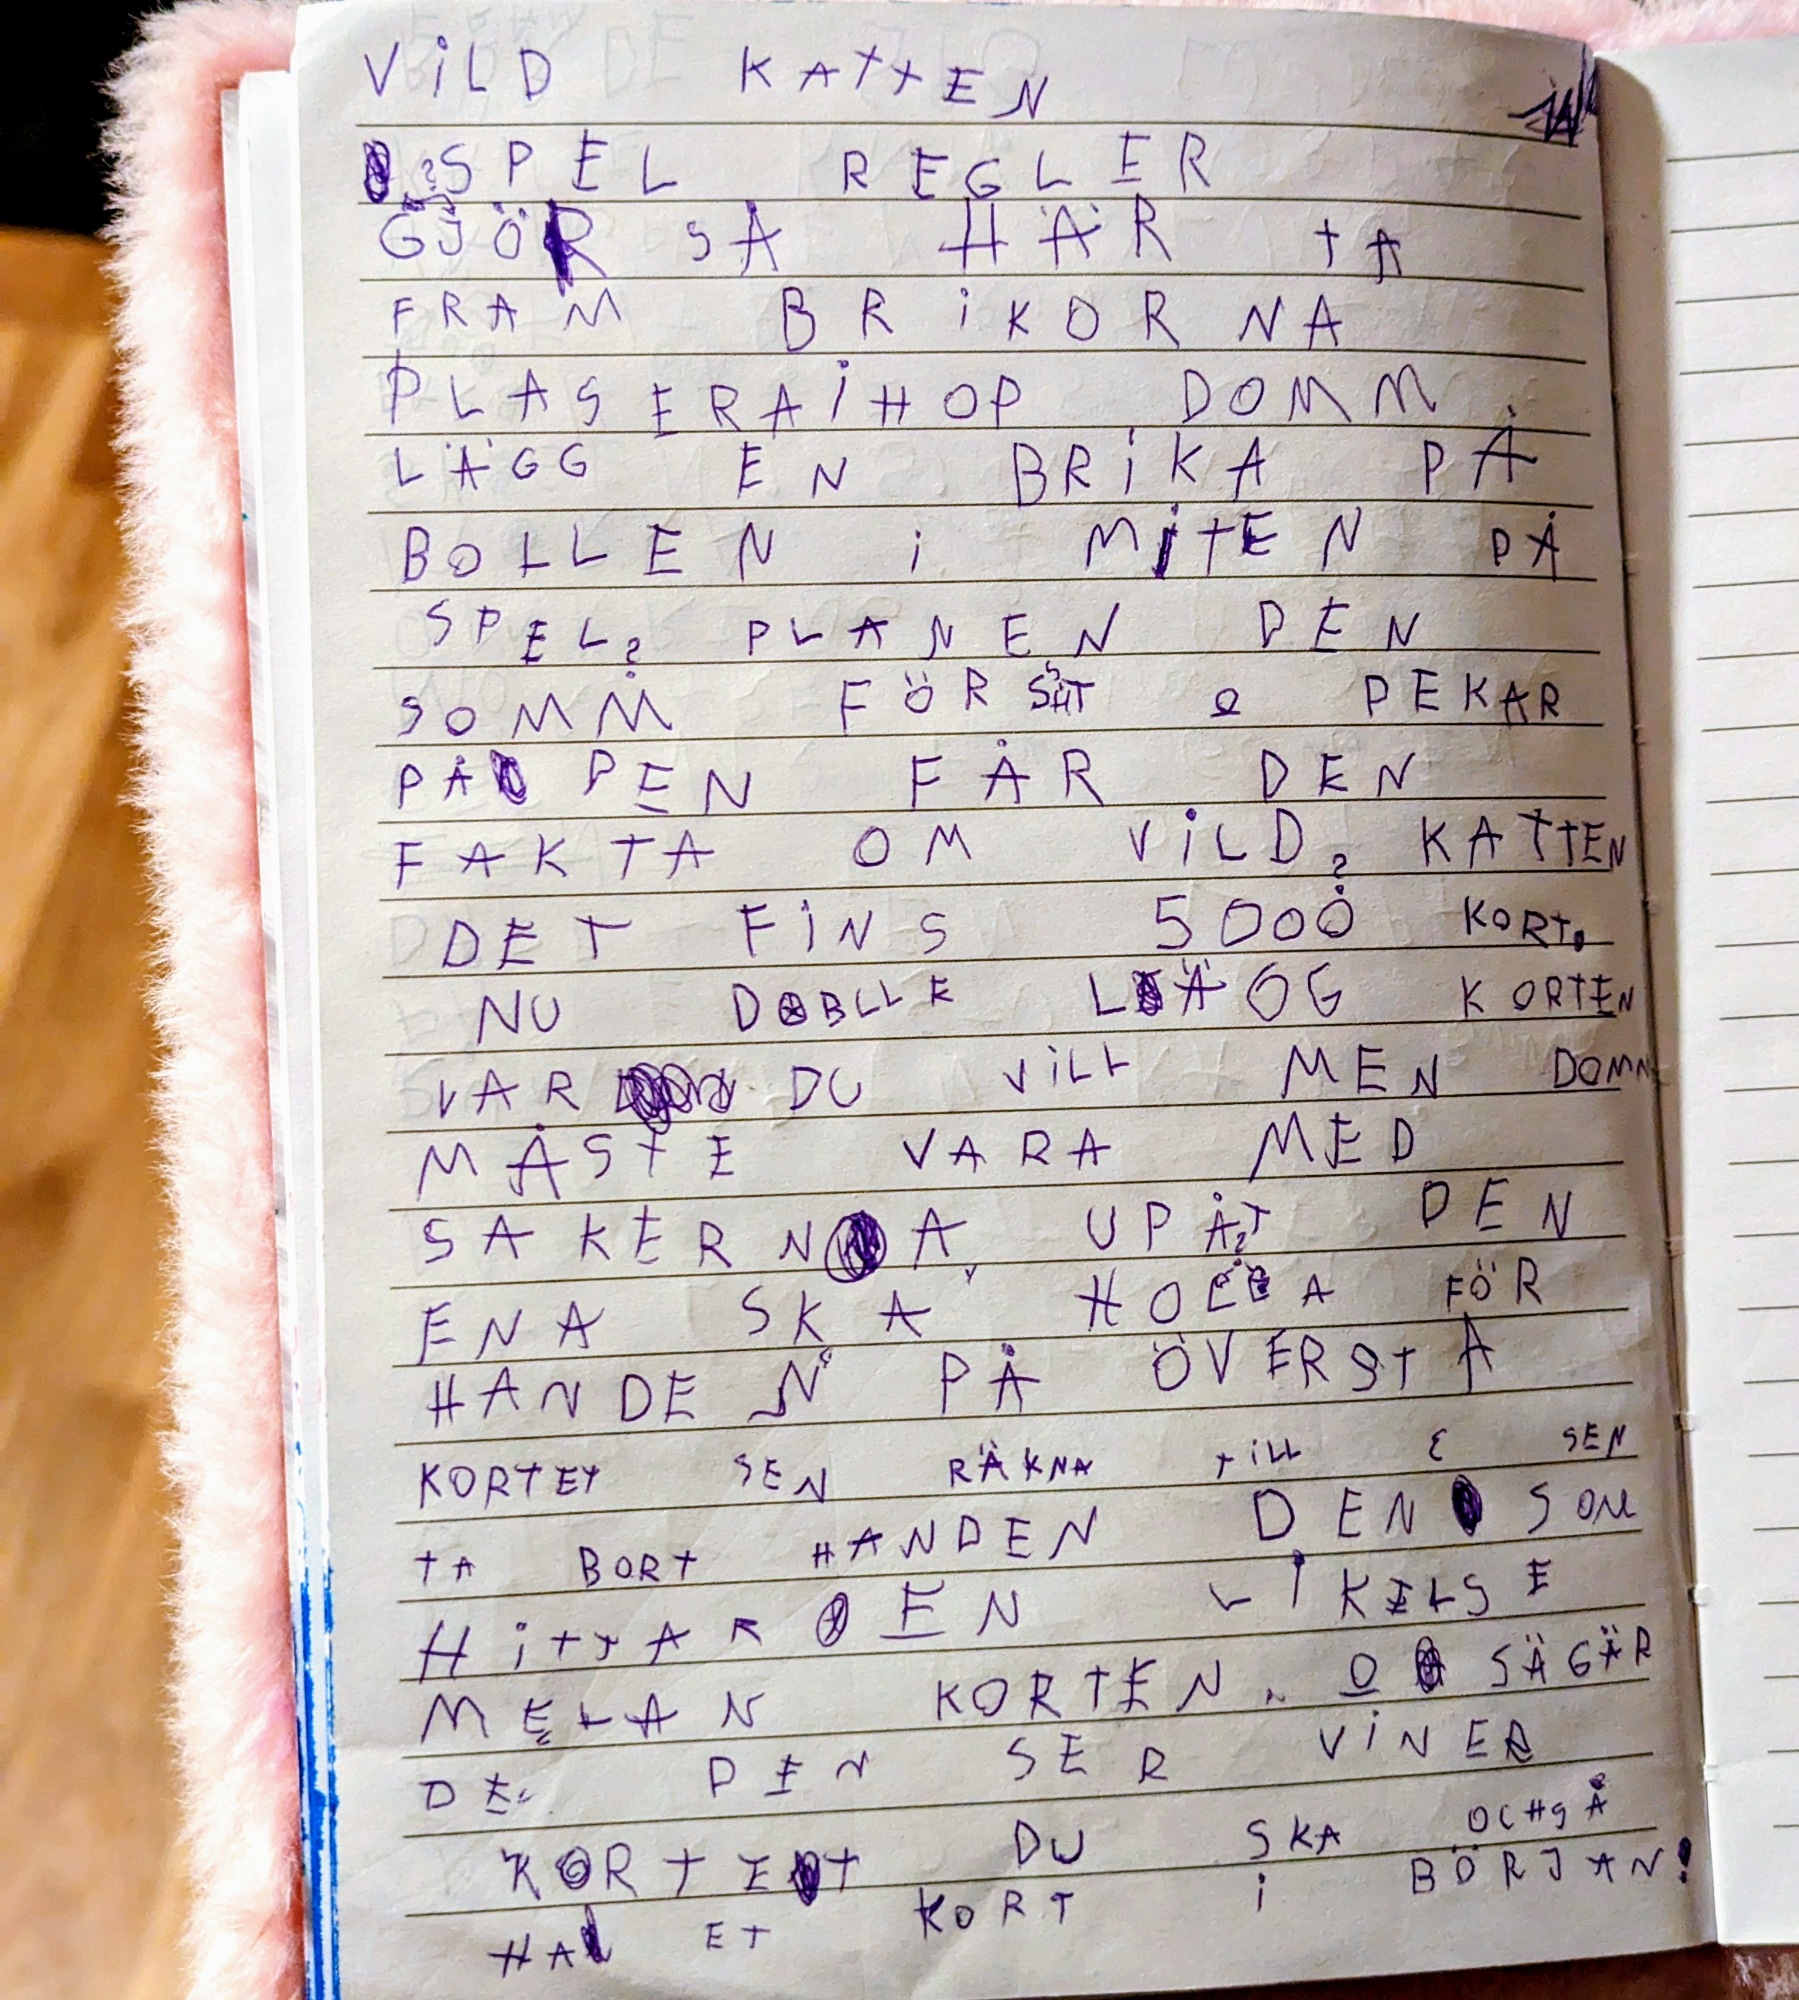 VILD KATTEN
SPEL REGLER
GJÖR SÅ HÄR TA
FRAM BRIKORNA
PLASERAIHOP DOMM
LÄGG EN BRIKA PÅ
BOLLEN i MITEN PÅ
SPEL PLANEN DEN
SOMM FÖRST PEKAR
PÅ DEN FÅR DEN
FAKTA OM VILD KATTEN
DET FINS 5000 KORT.
NU LÄGG KORTEN
VAR DU VILL MEN DOMM
MÅSTE VARA MED
SAKERNA UPÅT DEN
ENA SKA FÖR
HANDEN PÅ ÖVERSTA
KORTET SEN RÄKNA TILL SEN
TA BORT HANDEN DEN SOM
HITTAR EN LIKELSE
MELAN KORTEN. O SÄGÄR
DEN SER VINER
KORTET DU SKA OCHGÅ
HA ET KORT i BÖRJAN!